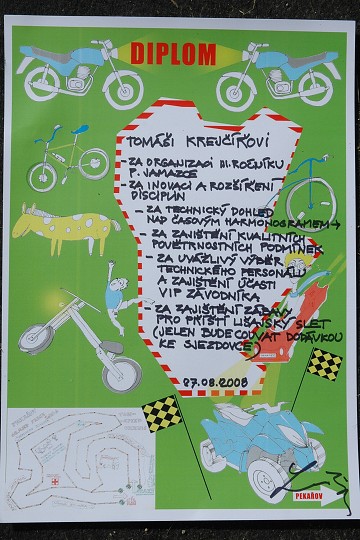 DIPLOM
TOMÁŠI KREJČÍŘOVI
- ZA ORGANIZACI III. ROČNÍKU
P. JAMAZCE
- ZA INOVACI A ROZŠÍŘENÍ
DISCIPLÍN
- ZA TECHNICKÝ DOHLED
NAD ČASOVÝM HARMONOGRAMEM
- ZA ZAJIŠTĚNÍ KVALITNÍCH
POVĚTRNOSTNÍCH PODMÍNEK
- ZA UVÁŽLIVÝ VÝBĚR
TECHNICKÉHO PERSONÁLU
A ZAJIŠTĚNÍ ÚČASTI
VIP ZÁVODNÍKA
- ZA ZAJIŠTĚNÍ ZÁBAVY
PRO PŘÍŠTÍ LIŠAJSKÝ SLET
(JELEN BUDE COUVAT DODÁVKOU
KE SJEZDOVCE)
27.08.2008
PEKAŘOV